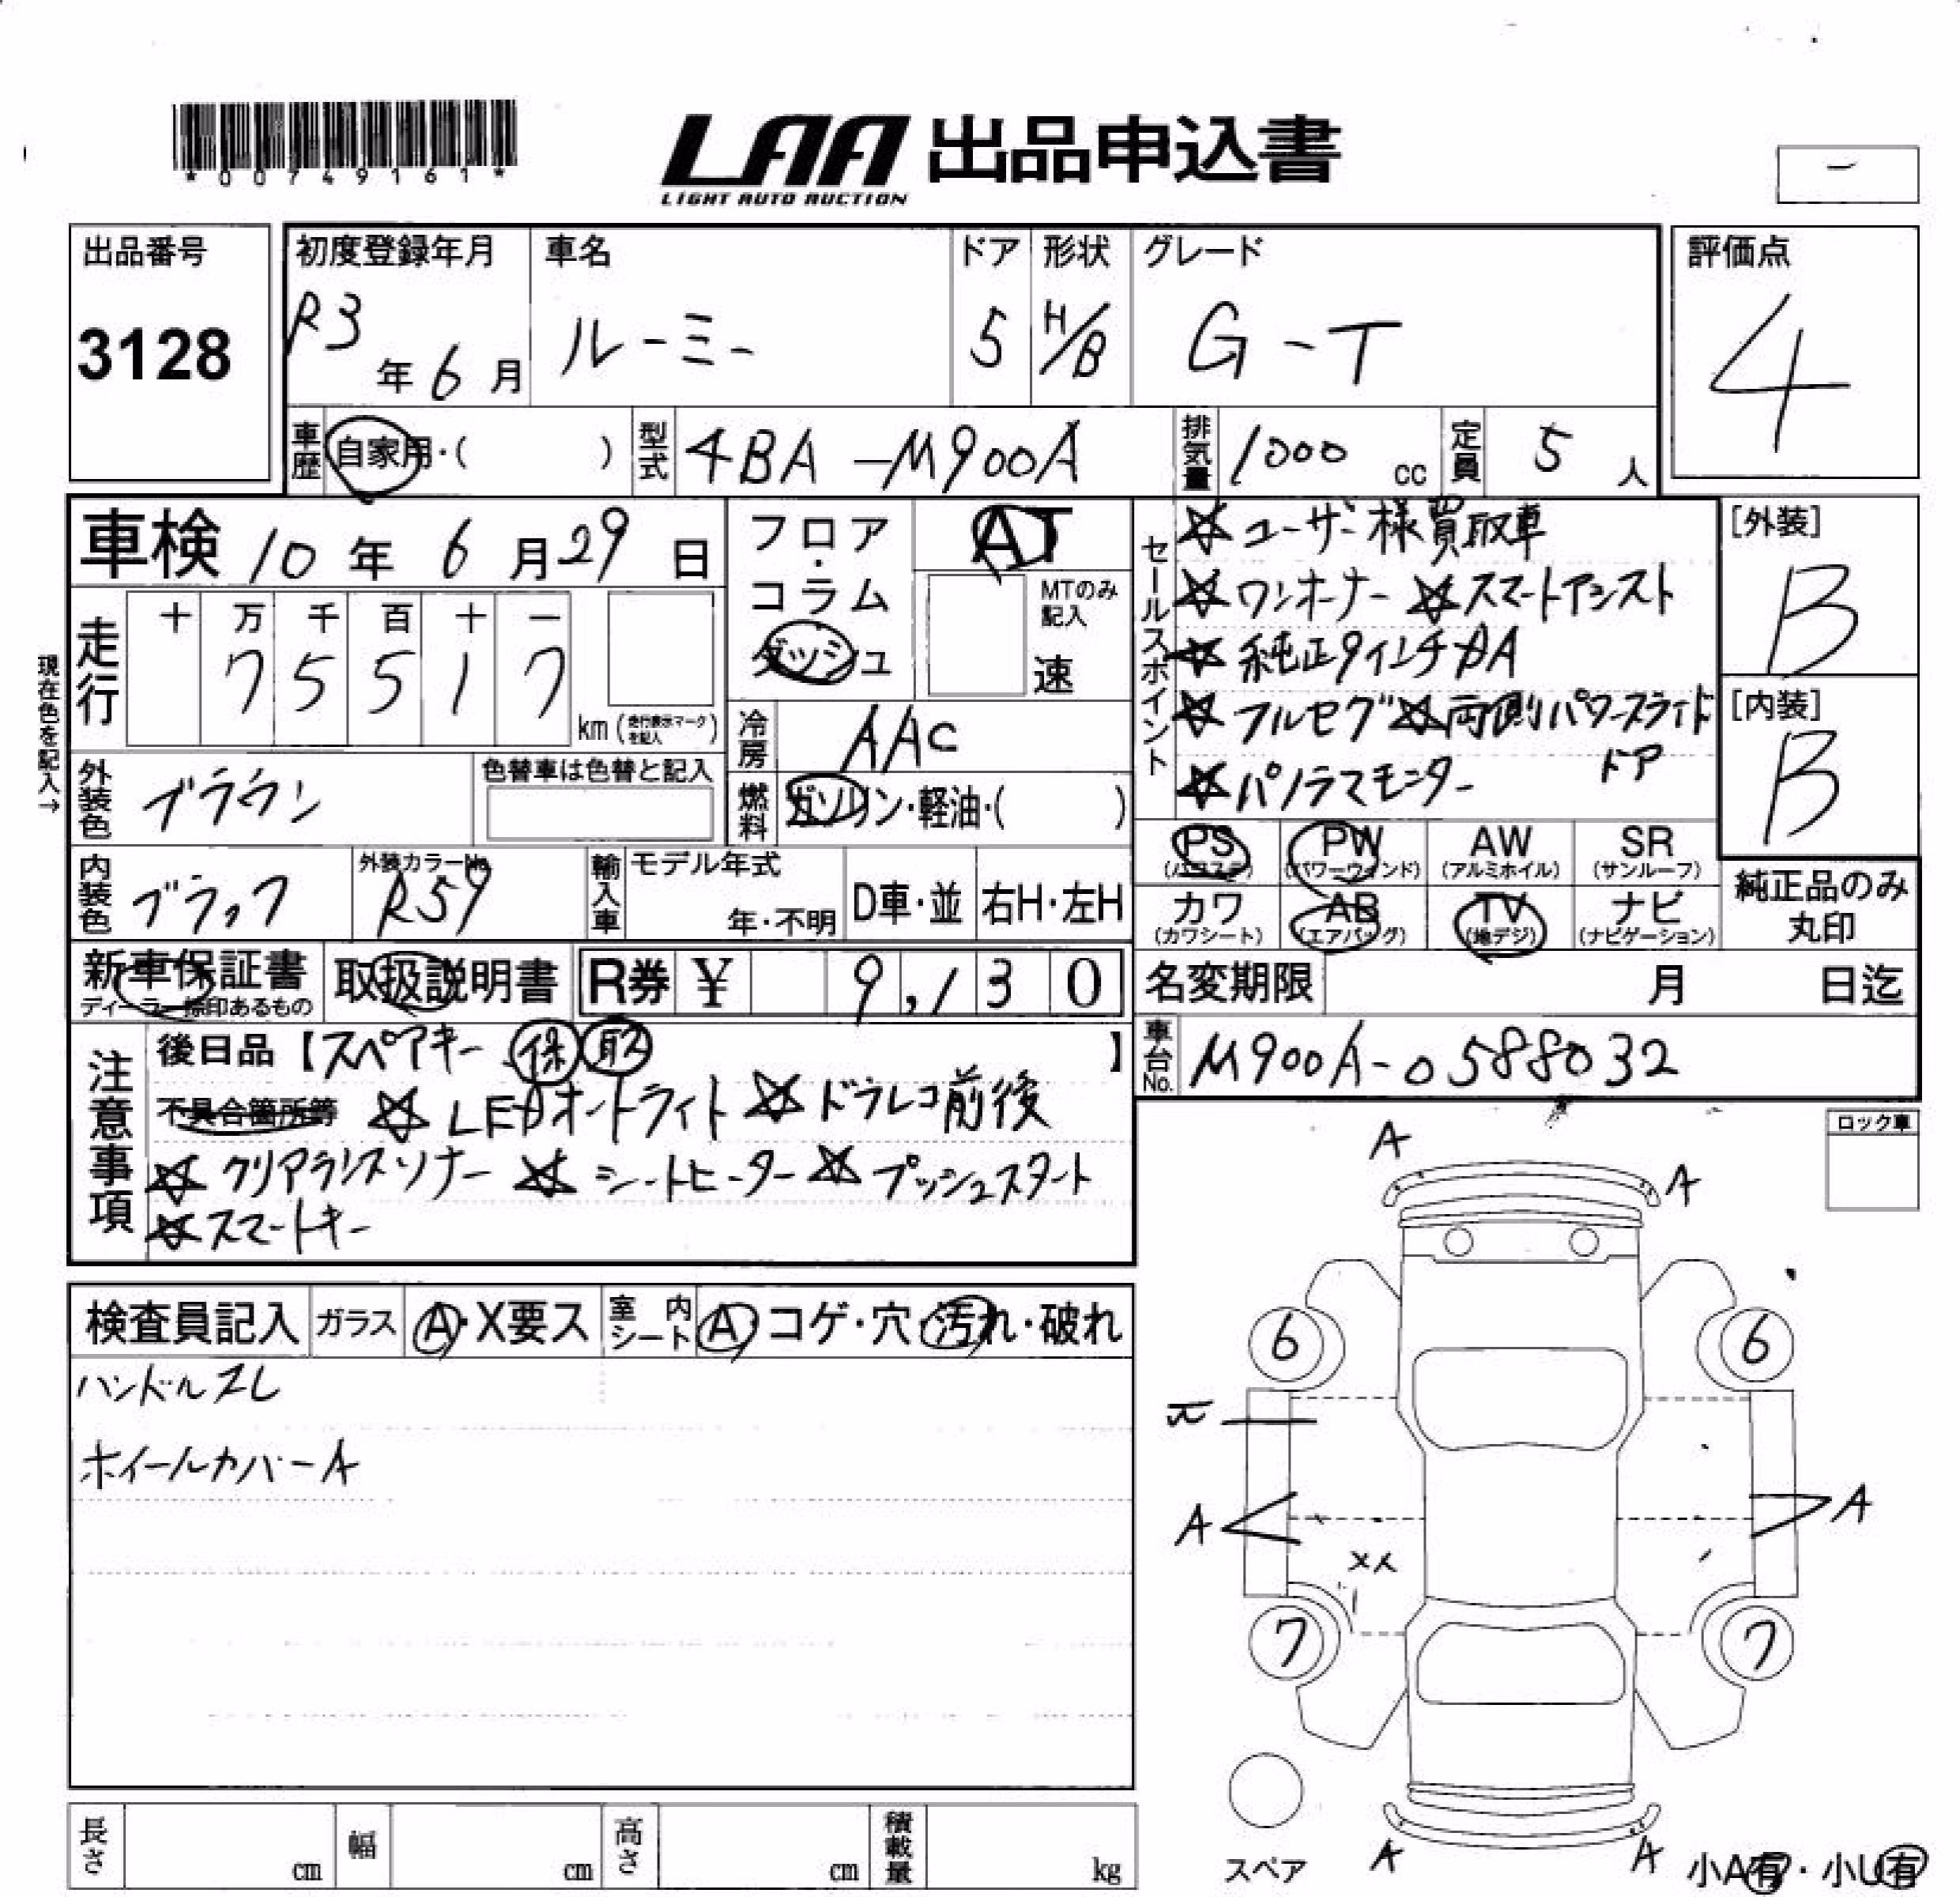 *00749161*
LAA 出品申込書
LIGHT AUTO AUCTION
出品番号
3128
初度登録年月
R3年6月
車名
ルーミー
ドア
5
形状
H/B
グレード
G-T
評価点
4
車歴 自家用・( )
型式 4BA-M900A
排気量 1000 cc
定員 5 人
車検 10年6月29日
走行
十 万 千 百 十 一
7 5 5 1 7
km (走行表示マークを記入)
現在色を記入→
フロア・コラム
ダッシュ
AT
MTのみ記入
速
冷房 AAC
燃料 ガソリン・軽油・( )
外装色 ブラウン
色替車は色替と記入
内装色 ブラック
外装カラーNo. R59
輸入車
モデル年式
年・不明
D車・並
右H・左H
セールスポイント
☆ユーザー様買取車
☆ワンオーナー ☆スマートアシスト
☆純正9インチDA
☆フルセグ ☆両側パワースライドドア
☆パノラマモニター
[外装]
B
[内装]
B
PS (パワステ)
PW (パワーウィンド)
AW (アルミホイル)
SR (サンルーフ)
カワ (カワシート)
AB (エアバッグ)
TV (地デジ)
ナビ (ナビゲーション)
純正品のみ丸印
新車保証書
ディーラー捺印あるもの
取扱説明書
R券 ¥ 9,130
名変期限 月 日迄
車台No. M900A-0588032
注意事項
後日品【スペアキー 保 取】
不具合箇所等 ☆LEDオートライト ☆ドラレコ前後
☆クリアランスソナー ☆シートヒーター ☆プッシュスタート
☆スマートキー
検査員記入
ガラス A・X要ス
室内シート A・コゲ・穴・汚れ・破れ
ハンドルスレ
ホイールカバーA
ロック車
A
A
6
6
A
A
XX
7
7
スペア
A
A
小A有・小U有
長さ cm
幅 cm
高さ cm
積載量 kg